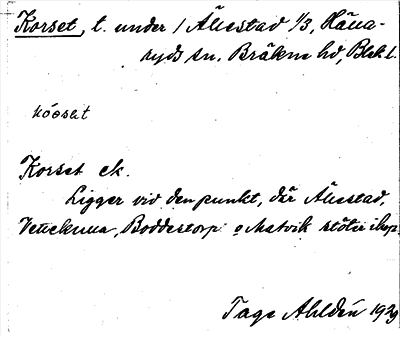 Korset, t. under 1 Åkestad 1/3, Hälla-
ryds sn. Bräkne hd, Blek. l.
kóoset
Korset ek.
Ligger vid den punkt, där Åkestad,
Vettekulla, Boddestorp o Matvik stöter ihop.
Tage Ahldén 1929